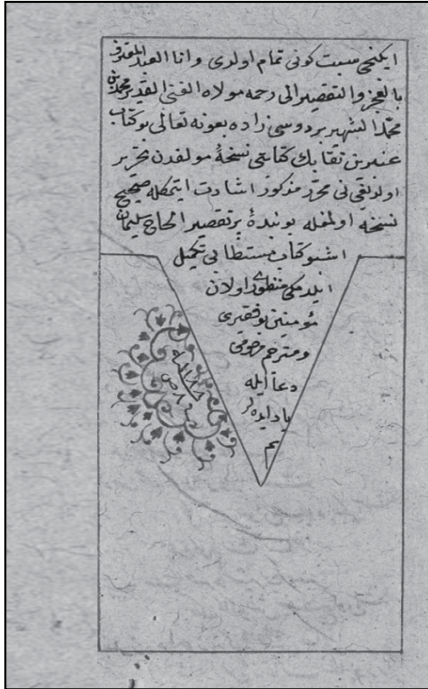 ایکنجی سبت کونی تمام اولدی وانا العبد المعترف
بالعجز والتقصیر الی رحمه مولاه الغنی القدیر محمد بن
محمد الشهیر بردوسی زاده بعونه تعالی بو کتاب
کتابتی نسخهٔ مولفدن تحریر
اولندیغی محرر مذکور اشارت ایتمکله صحیح
نسخه اولمغله بو بندهٔ پر تقصیر الحاج سلیمان
اشبو کتاب مستطابی تکمیل
ایلدمکه منظوری اولان
مؤمنین بو فقیری
ومترجم مرحومی
دعا ایله
یاد ایده لر
تم